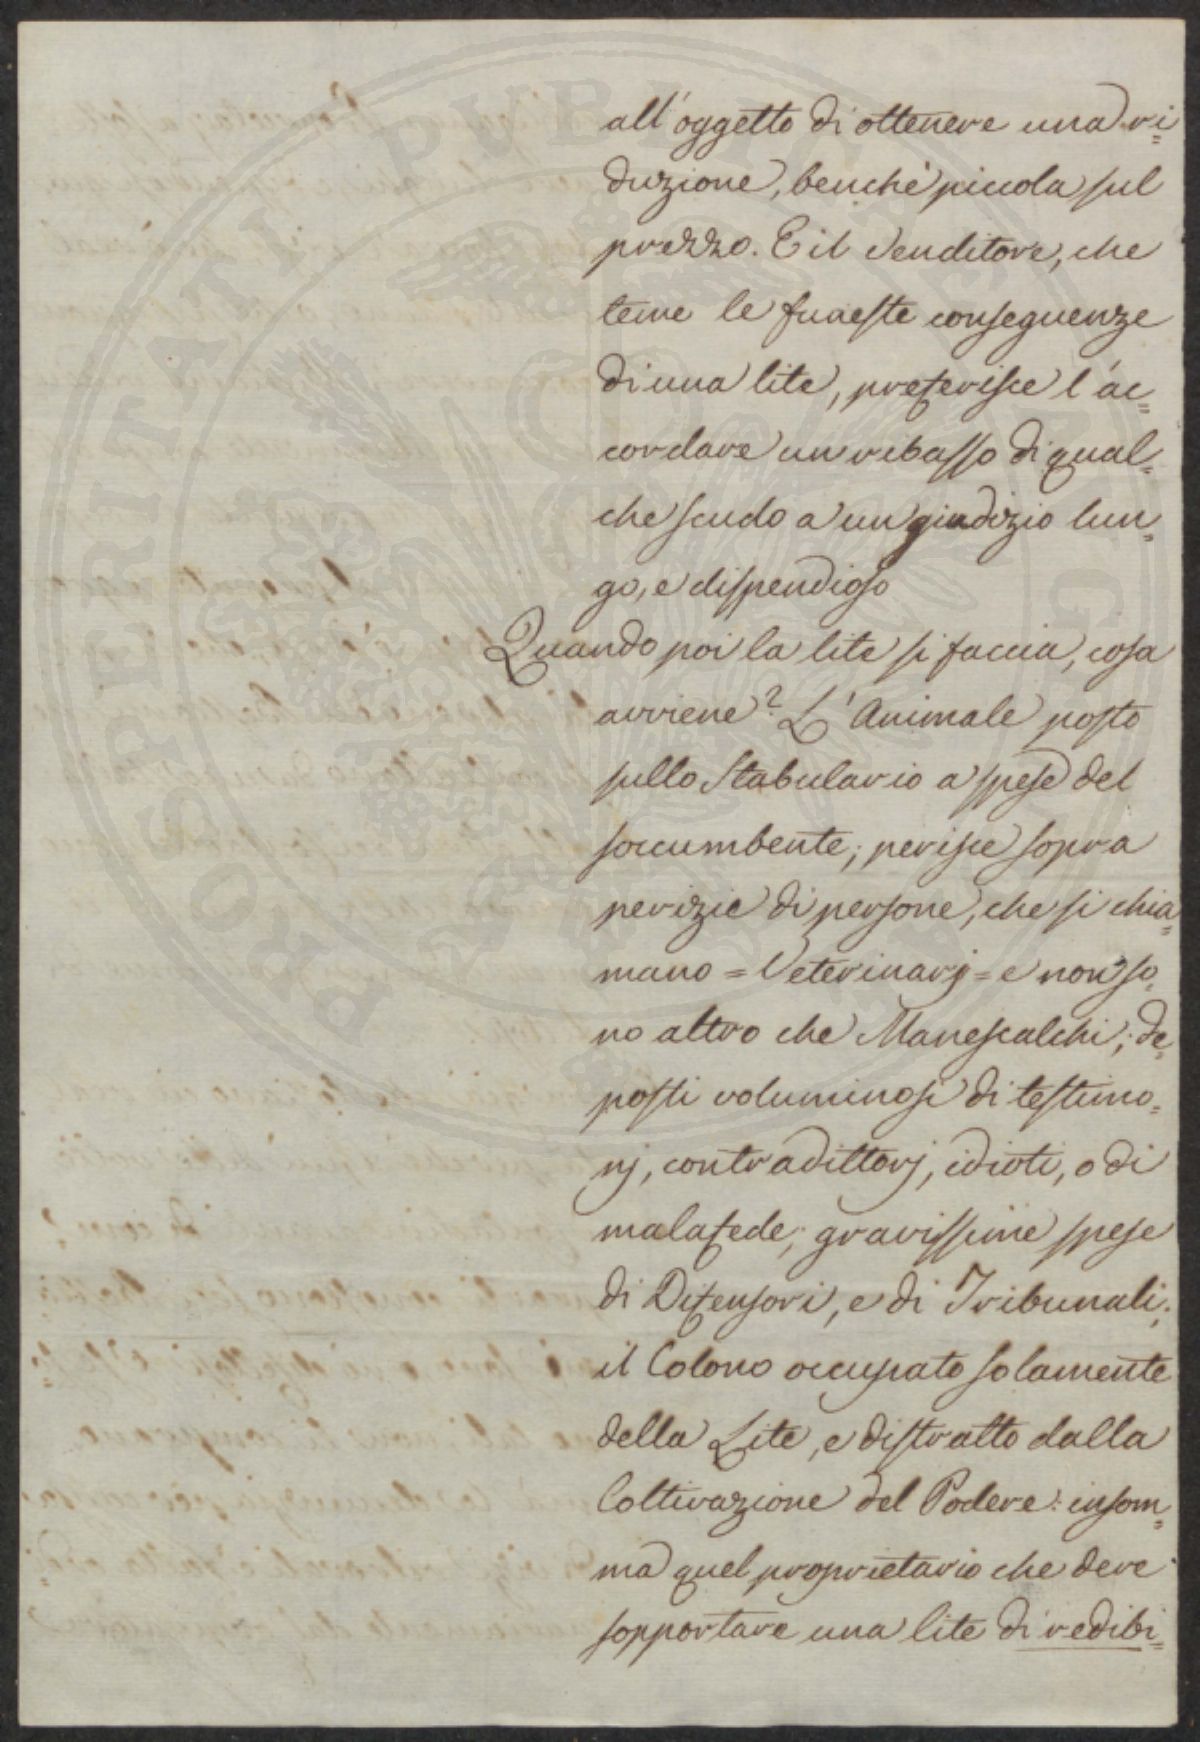 all'oggetto di ottenere una ri=
duzione, benchè piccola sul
prezzo. E il Venditore, che
teme le funeste conseguenze
di una lite, preferisce l'ac=
cordare un ribasso di qual=
che scudo a un giudizio lun=
go, e dispendioso
Quando poi la lite si faccia, cosa
avviene? L'Animale posto
sullo Stabulario a spese del
soccumbente; perisce sopra
perizie di persone, che si chia=
mano = Veterinarj = e non so=
no altro che Manescalchi; de=
posti voluminosi di testimo=
nj, contradittorj, idioti, o di
malafede; gravissime spese
di Difensori, e di Tribunali;
il Colono occupato solamente
della Lite, e distratto dalla
Coltivazione del Podere: insom=
ma quel proprietario che deve
sopportare una lite di redibi=
PROSPERITATI PVBLICAE AVGENDAE